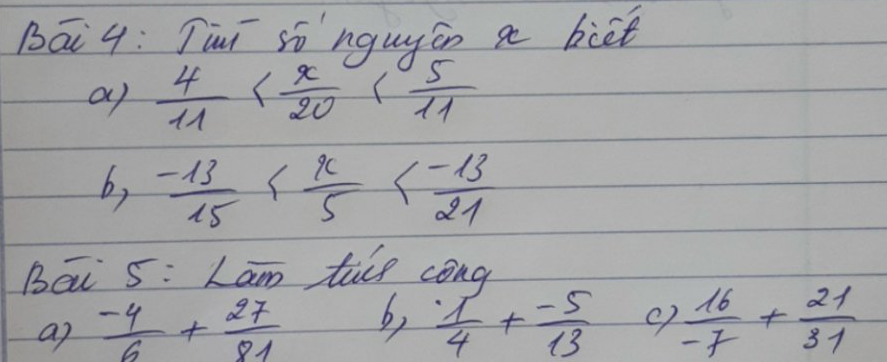 Bài 4: Tìm số nguyên x biết
a) 4/11 < x/20 < 5/11
b, -13/15 < x/5 < -13/21
Bài 5: Làm tính cộng
a) -4/6 + 27/81 b, 1/4 + -5/13 c) 16/-7 + 21/31